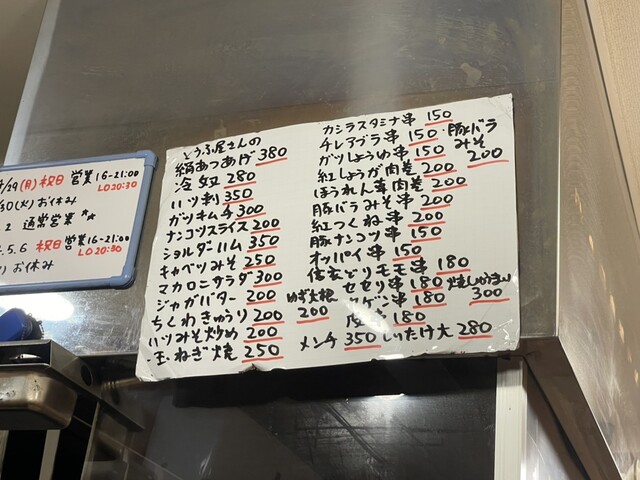 /29(月)祝日 営業16-21:00
LO20:30
30(火)お休み
2 通常営業
5.6 祝日 営業16-21:00
LO20:30
お休み
とうふ屋さんの
絹あつあげ 380
冷奴 280
ハツ刺 350
ガツキムチ 300
ナンコツスライス 200
ショルダーハム 350
キャベツみそ 250
マカロニサラダ 300
ジャガバター 200
ちくわきゅうり 200
ハツみそ炒め 200
玉ねぎ焼 250
ゆず大根
200
カシラスタミナ串 150
チレアブラ串 150
ガツしょうゆ串 150
紅しょうが肉巻 200
ほうれん草肉巻 200
豚バラみそ串 200
紅つくね串 200
豚ナンコツ串 150
オッパイ串 150
信玄どりモモ串 180
セセリ串 180
ゲン串 180
皮 180
メンチ 350 しいたけ大 280
豚バラ
みそ
200
300